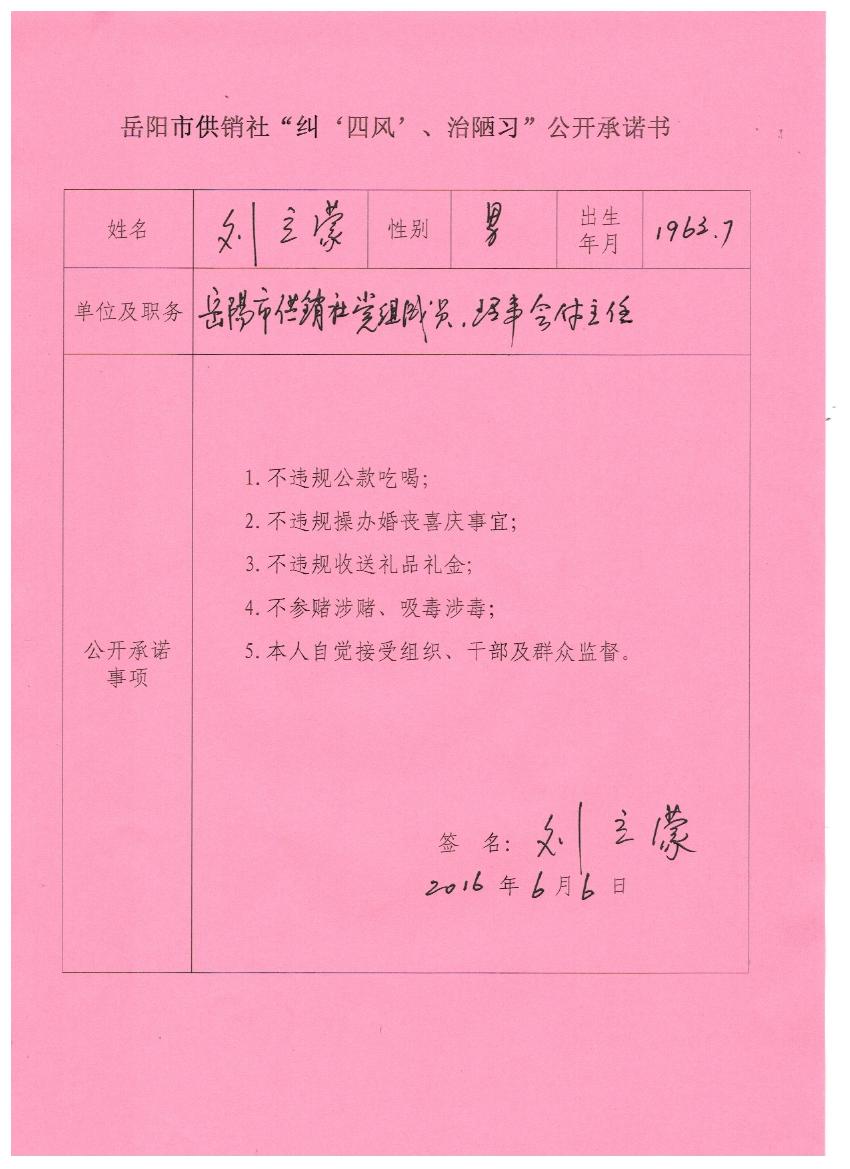 岳阳市供销社“纠‘四风’、治陋习”公开承诺书
姓名 刘立蒙 性别 男 出生年月 1963.7
单位及职务 岳陽市供销社党组成员、理事会付主任
公开承诺事项
1.不违规公款吃喝;
2.不违规操办婚丧喜庆事宜;
3.不违规收送礼品礼金;
4.不参赌涉赌、吸毒涉毒;
5.本人自觉接受组织、干部及群众监督。
签 名: 刘立濛
2016年6月6日